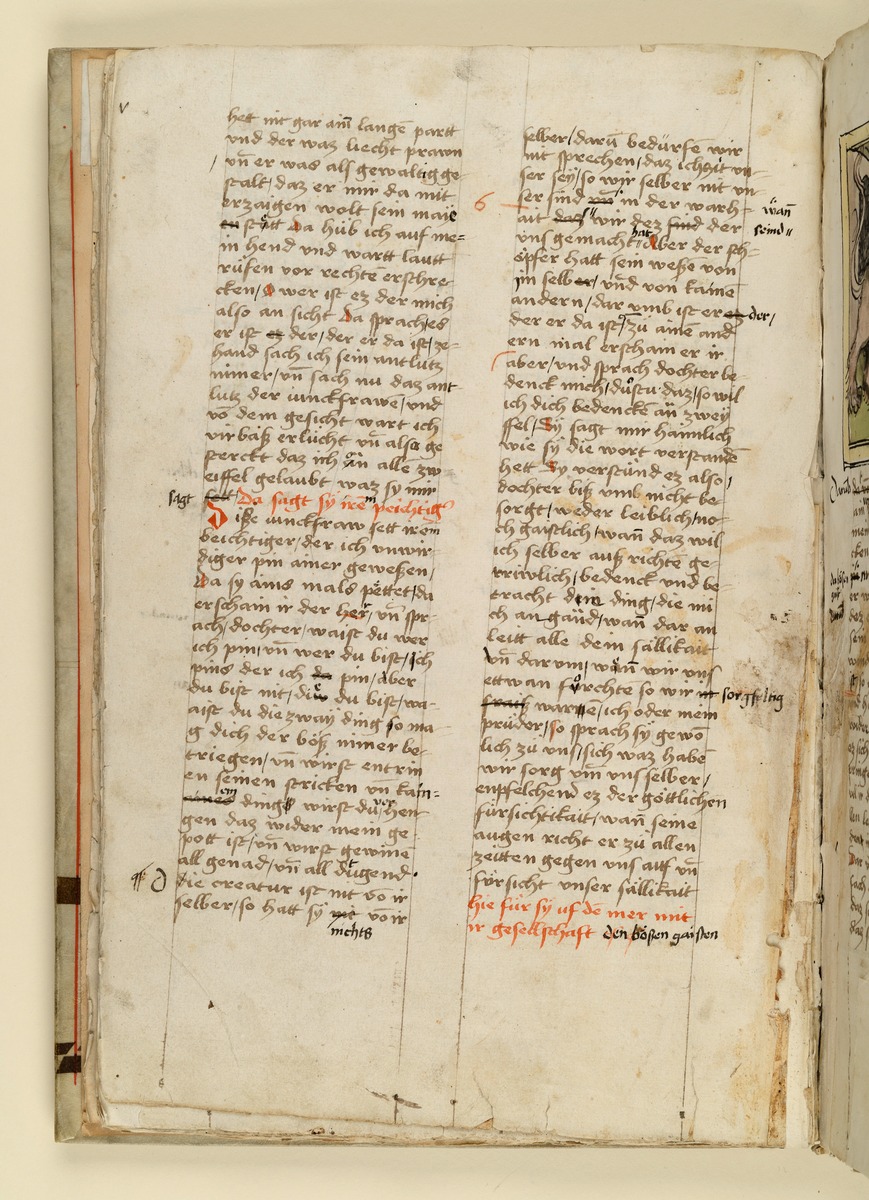 hett nit gar aim̄ langē partt
vnd der waz liecht prawn
vn̄ er was als gewaltig ge-
stalt / daz er mir da mit
erzaigen wolt sein maye
stätt Da hůb ich auf me=
in hend und wartt lautt
růfen vor rechtē erschre
cken / O wer ist ez der mich
also an sicht Da sprach es
er ist ez der / der er da ist / ze-
hand sach ich sein antlutz
nimer / vn̄ sach nu daz ant-
lutz der iunckfrawē / und
vō dem gesicht wart ich
virbaß erlücht vn̄ also ge
sterckt daz ich ān allen zw
eiffel gelaubt waz sy mir
sagt Da sagt sy irem peichtig
Diße iunckfraw sett irem
beichtiger / der ich vnwir-
diger pin ainer geweßen /
Da sy ains mals pettet / da
erschain ir der her / vn̄ spr-
ach / dochter / waist du wer
ich pin / vn̄ wer du bist / ich
pins der ich da pin / aber
du bist nit / die du bist / wa-
aist du die zway ding so ma-
g dich der böß nimer be-
triegen / vn̄ wirst entrin
en seinen stricken vn kain=
em ding wirst du ver hen
gen daz wider mein ge-
pott ist / vn̄ wirst gewinē
all genad / vn̄ all dugend
die creatur ist nit vō ir
selber / so hatt sy nit vō ir
nichts
selber / darū bedürfē wir
nit sprechen / daz ich nit vn-
ser sey / so wir selber nit vn
ser sind vn̄ in der warh-
wan̄
ait daz wir dez sind der
seind
vns gemacht hat aber der sch-
öpfer hatt sein weßen von
im selber / vnd von kaine
andern / dar vmb ist er ez der /
der er da ist / zů ainē and
ern mal erschain er ir
aber / und sprach dochter be-
denck mich / důstu daz / so wil
ich dich bedenckē an zwey
ffel / Sy sagt mir haimlich
wie sy die wort verstandē
hett Sy verstůnd ez also /
dochter biß vmb nicht be-
sorgt / weder leiblich / no-
ch gaistlich / wan̄ daz wil
ich selber auß richtē ge-
triwlich / bedenck und be-
tracht dein ding / die mi
ch an gand / wan̄ dar an
leitt alle dein sällikait
vn̄ darvm / wan̄ wir vns
ettwan forchte so wir nit sorgfeltig
warnē / ich oder mein
prüder / so sprach sy gewō
lich zů uns / sich waz habē
wir sorg vm̄ vns selber /
enpfelchend ez der göttlichen
fürsichtikait / wan̄ seine
augen richt er zů allen
zeitten gegen vns auf vn̄
fürsicht unser sällikait
hie für sy uf dē mer mit
ir gesellschaft den bösen gaisten